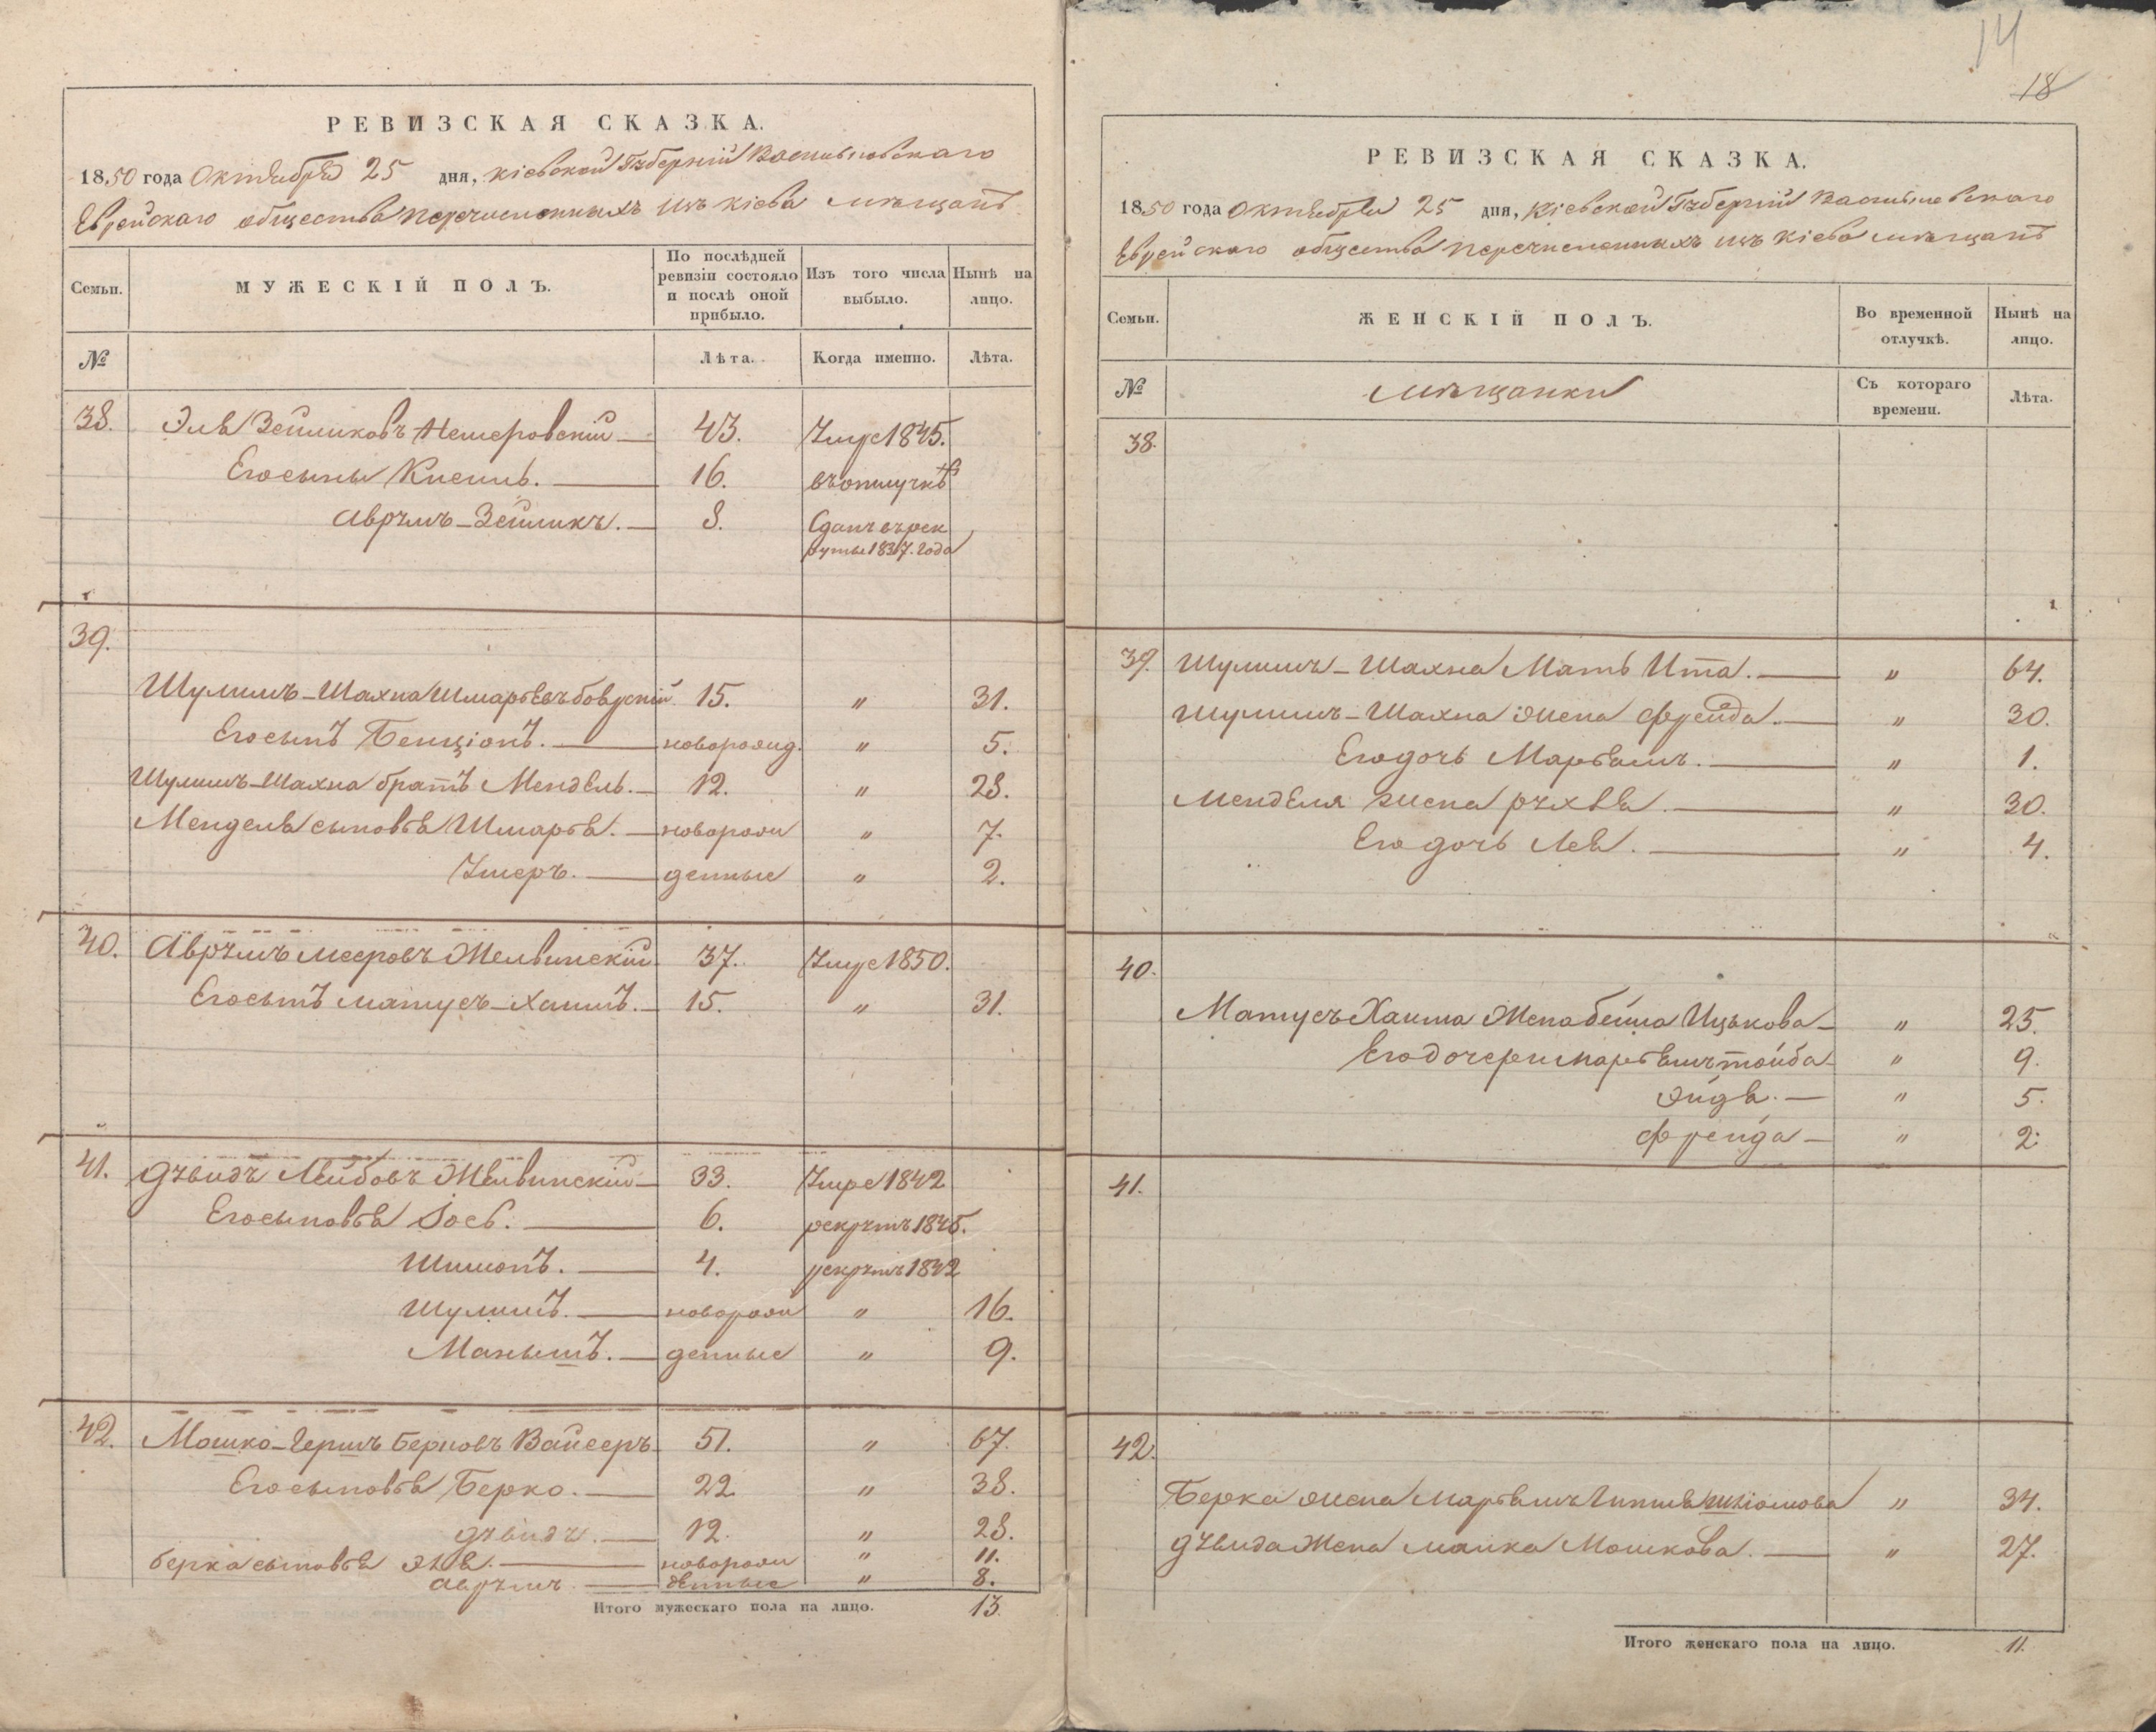 РЕВИЗСКАЯ СКАЗКА.
1850 года Октября 25 дня, Кіевской Губерніи Васильковскаго
Еврейскаго общества перечисленныхъ изъ Кіева мѣщанъ
Семьи.
МУЖЕСКІЙ ПОЛЪ.
По послѣдней ревизіи состояло и послѣ оной прибыло.
Изъ того числа выбыло.
Нынѣ на лицо.
№
Лѣта.
Когда именно.
Лѣта.
38. Эля Зейликовъ Немеровскій 43. Умре 1845.
Его сыны Кисиль. 16. въ отлучкѣ
Аврумъ-Зейликъ. 8. Сданъ въ рек
руты 1837. года
39.
Шулимъ-Шахна Шмарьевъ 15. " 31.
Его сынъ Бенціонъ. новорожд. " 5.
Шулимъ-Шахна братъ Мендель. 12. " 28.
Менделя сыновья Шмарья. новорож " 7.
Умеръ. денные " 2.
40. Аврумъ Мееровъ Желвинскій 37. Умре 1850.
Его сынъ Матусъ-Хаимъ. 15. " 31.
41. Дувидъ Лейбовъ Желвинскій 33. Умре 1842
Его сыновья Іось. 6. рекрутъ 1845.
Шимонъ. 4. рекрутъ 1842
Шулимъ. новорож " 16.
Манышъ. денные " 9.
42. Мошко-Гершъ Берковъ Вайсеръ 51. " 67.
Его сыновья Берко. 22 " 38.
Дувидъ. 12. " 28.
Берка сыновья Эля. новорож " 11.
Аврумъ. денные " 8.
Итого мужескаго пола на лицо. 13
14
18
РЕВИЗСКАЯ СКАЗКА.
1850 года Октября 25 дня, Кіевской Губерніи Васильковскаго
Еврейскаго общества перечисленныхъ изъ Кіева мѣщанъ
Семьи.
ЖЕНСКІЙ ПОЛЪ.
Во временной отлучкѣ.
Нынѣ на лицо.
№
Мѣщанки
Съ котораго времени.
Лѣта.
38.
39. Шулимъ-Шахна Мать Ита. " 64.
Шулимъ-Шахна жена Фрейда. " 30.
Его дочь Марьямъ. " 1.
Менделя жена Рухля. " 30.
Его дочь Лея. " 4.
40.
Матусъ Хаима Жена Бейла Ицькова " 25.
Его дочери Марьямъ Тойба " 9.
Эйдя. " 5.
Фрейда " 2.
41.
42.
Берка жена Марьямъ Шліомова " 34.
Дувида Жена Малка Мошкова. " 27.
Итого женскаго пола на лицо. 11.